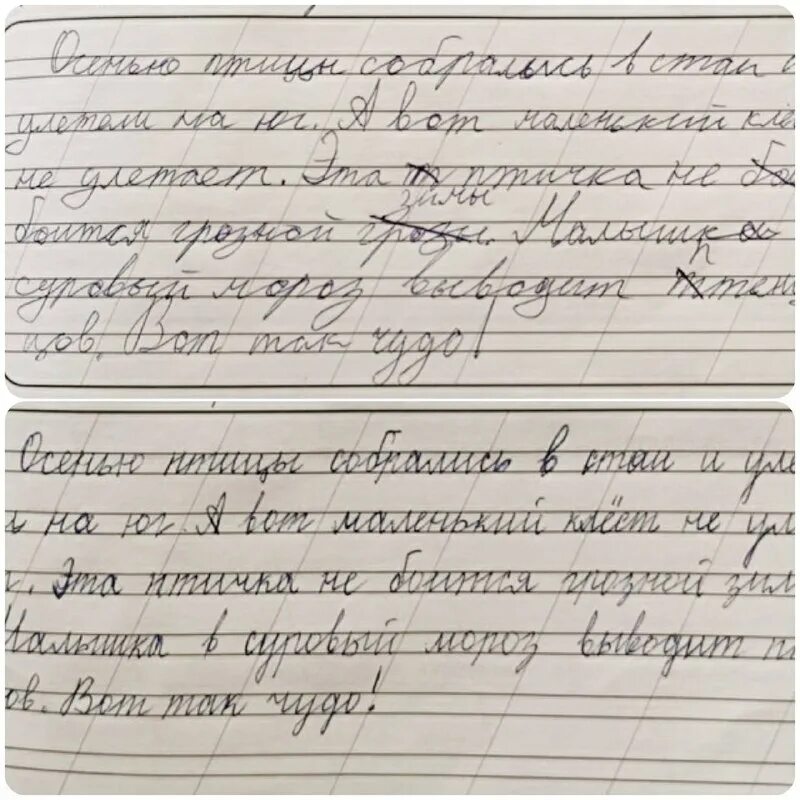 Осенью птицы собрались в стаи
улетели на юг. А вот маленский клё
не улетает. Эта птичка не бои
зимы
боится грозной грозы. Малышка
п
суровый мороз выводит птенц
цов. Вот так чудо!
Осенью птицы собрались в стаи и уле
и на юг. А вот маленький клёст не ул
. Эта птичка не боится грозной зим
Малышка в суровый мороз выводит п
ов. Вот так чудо!